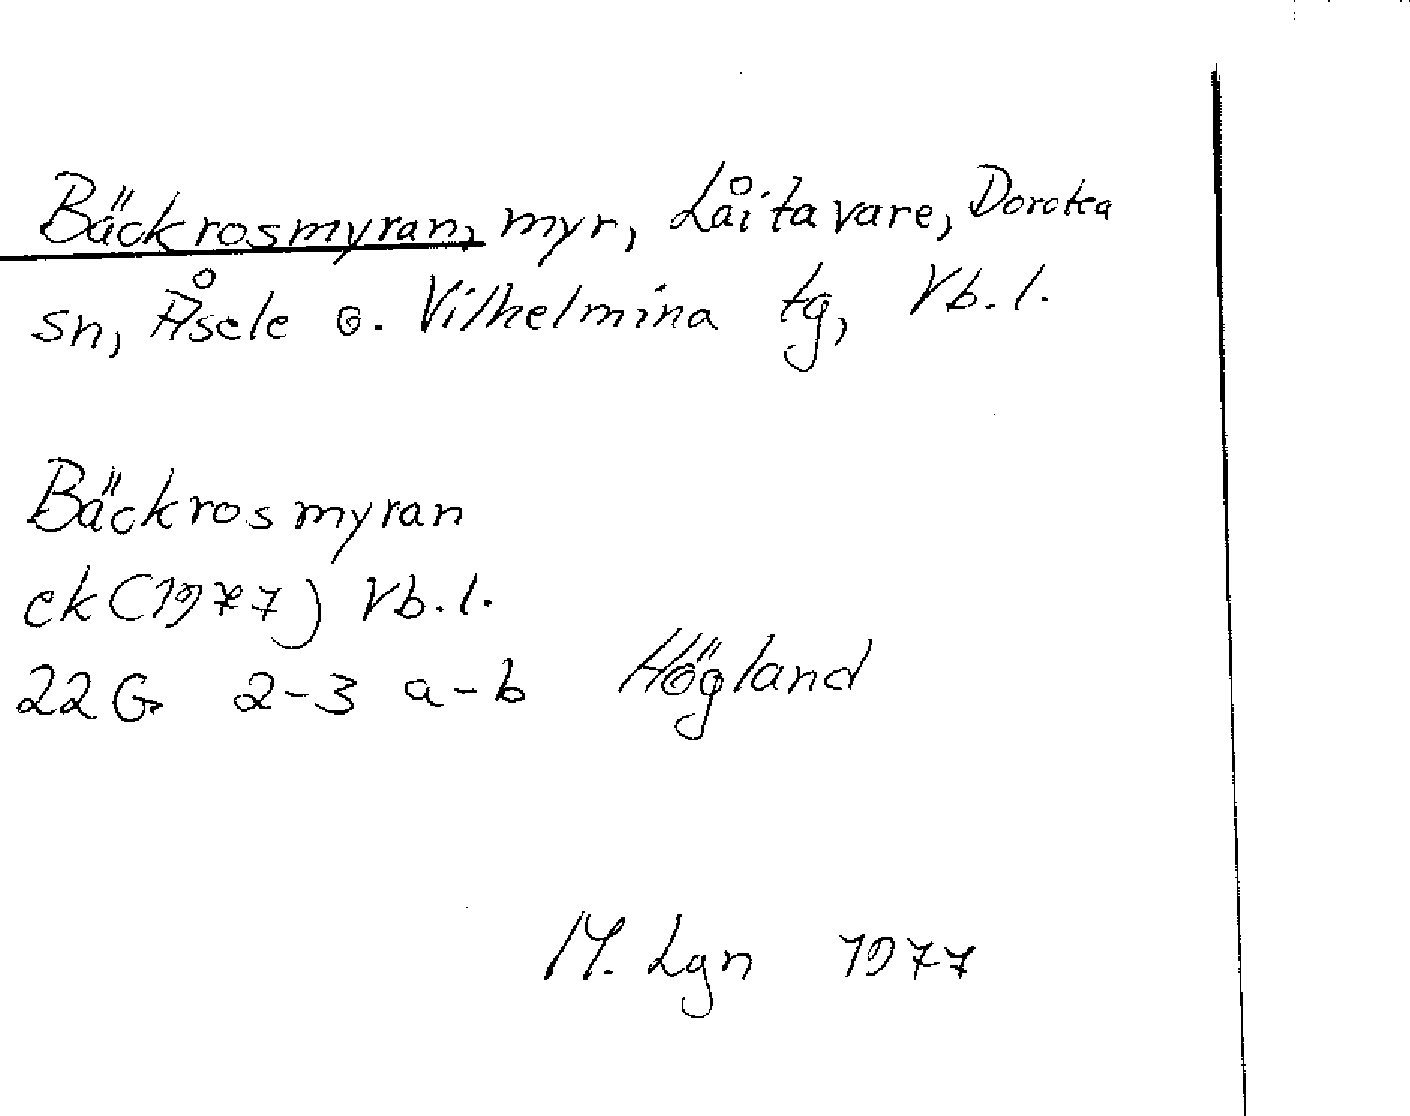 Bäckrosmyran, myr, Låitavare, Dorotea
sn, Åsele o. Vilhelmina tg, Vb. l.
Bäckrosmyran
ek (1977) Vb. l.
22 G 2-3 a-b Högland
M. Lgn 1977